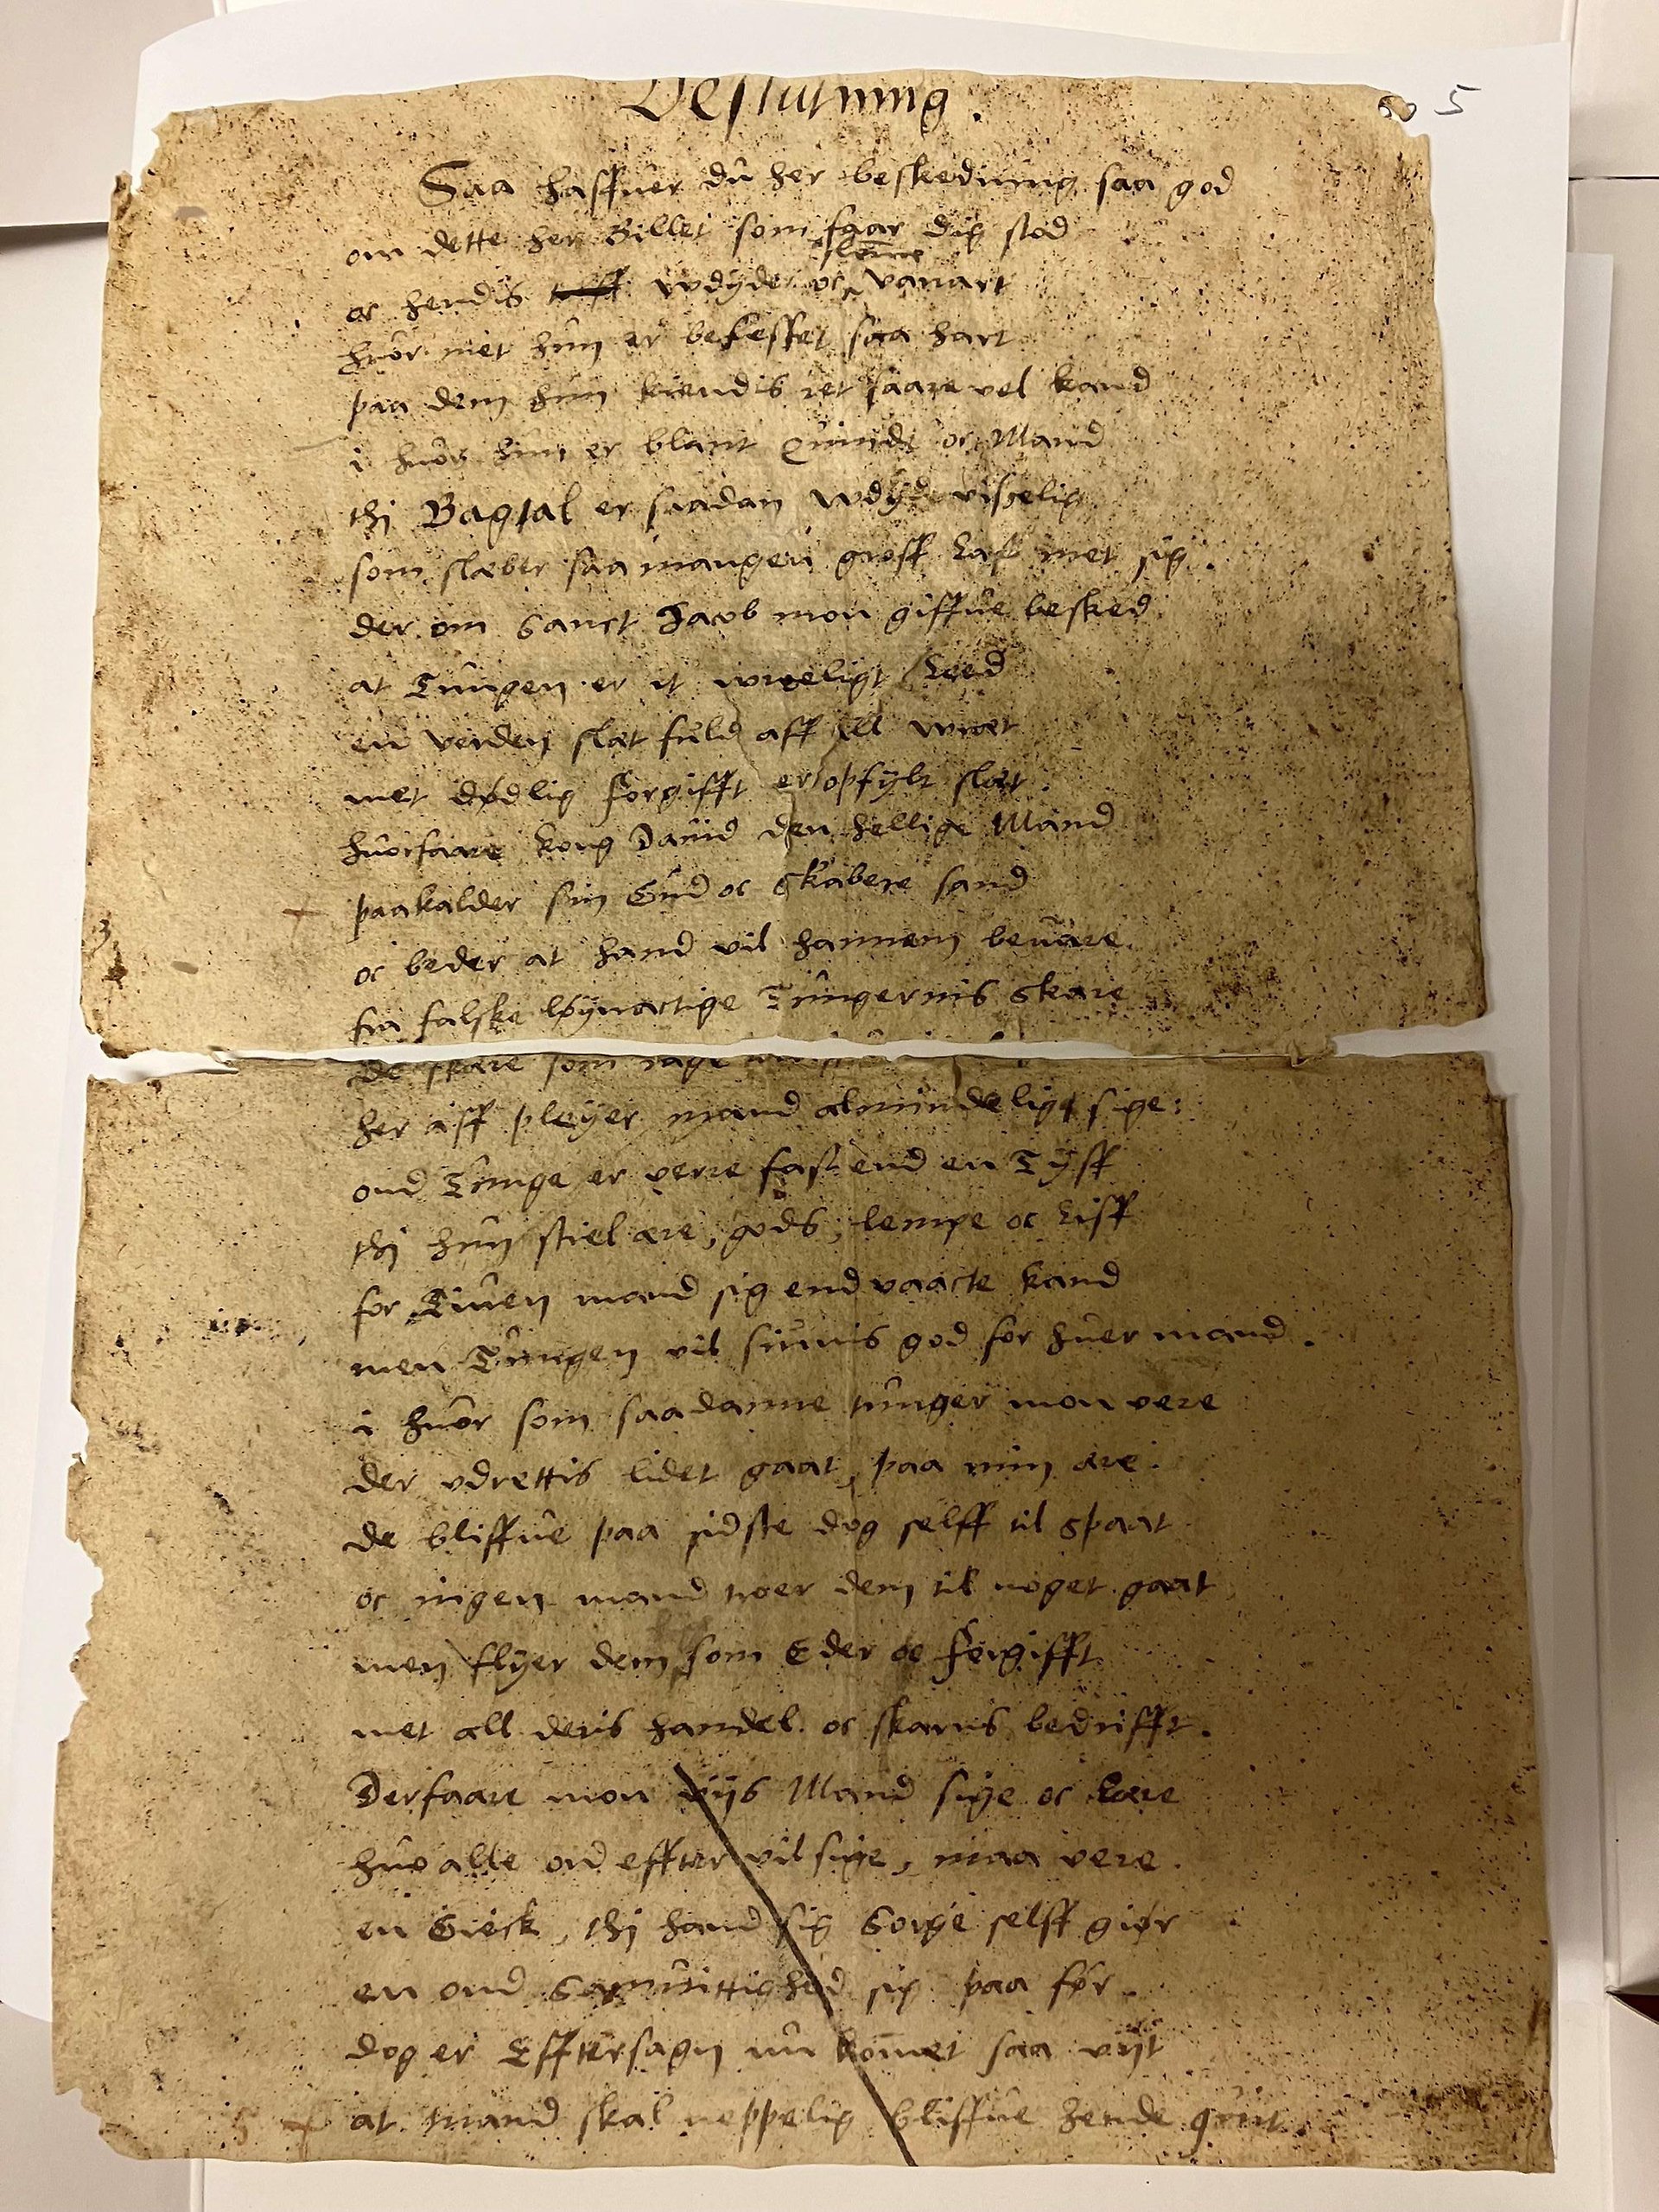 Beslutning.
5
Saa haffuer du her beskedning saa god
om dette her Billet som faar dig stod
oc hendis wdyder oc slemme vanart
huor met hun er befesset saa hart
paa dem hun kiendis ret saare vel kand
i huor hun er blant Quinde oc Mand
thj Bagtal er saadan wdyd visselig
som slæber saa mangen groff Last met sig.
der om Sanct Jacob mon giffue besked
at Tungen er it wroeligt Leed
en verden slæt fuld aff all wræt
met dødlig Forgifft er opfylt slæt.
huorfaare kong Dauid den hellige Mand
paakalder sin Gud oc Skabere sand
oc beder at hand vil hannem beuare.
fra falske løynactige Tungernis Skare
de skære som rage
her aff pleyer mand almindeligt sige:
ond Tunge er verre fast end en Tyff
thj hun stiel ære, gods, lempe oc Liff
for Tiuen mand sig end vaacte kand
men Tungen vil siunis god for huer mand.
i huor som saadanne tunger mon vere
der vdrettis lidet gaat, paa min ære.
de bliffue paa sidste dog selff til Spaat
oc ingen mand troer dem til noget gaat
men flyer dem som Eder oc Forgifft
met all deris handel oc skarns bedrifft.
Derfaare mon viis Mand sige oc Lære
huo alle ord effter vil sige, maa vere.
en Gieck, thj hand sig Sorge selff giør
en ond Samuittighed sig paa før.
dog er Efftersagn nu kommet saa viit
at mand skal neppelig bliffue hende quit.